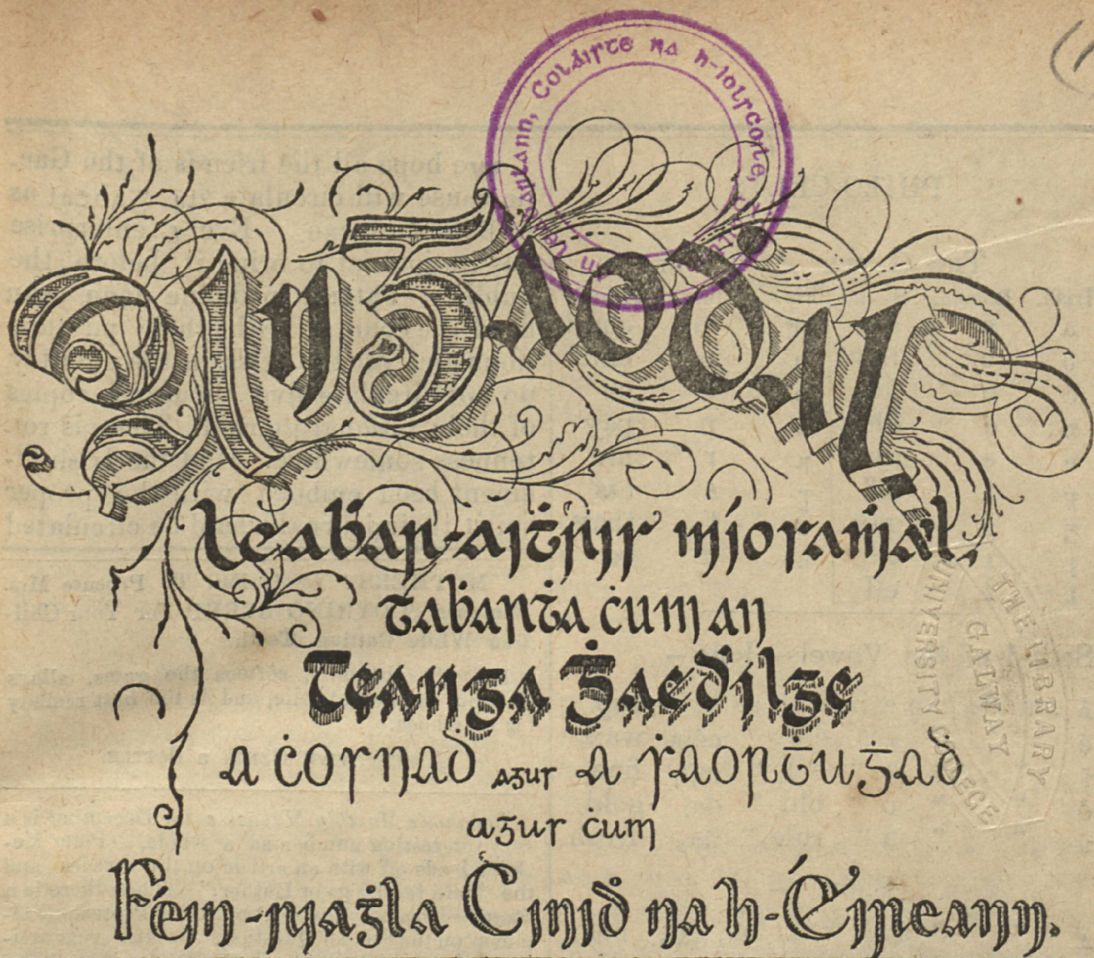 Coláisте na h-Iolscoile,
An Gaoḋal
Leaḃar-aiṫris míosaṁail,
taḃarta ċum an
Teanga Ġaeḋilge
a ċosnaḋ agus a ṡaorṫuġaḋ
agus ċum
Féin-riaġla Ciniḋ na h-Éireann.
THE LIBRARY
UNIVERSITY COLLEGE
GALWAY